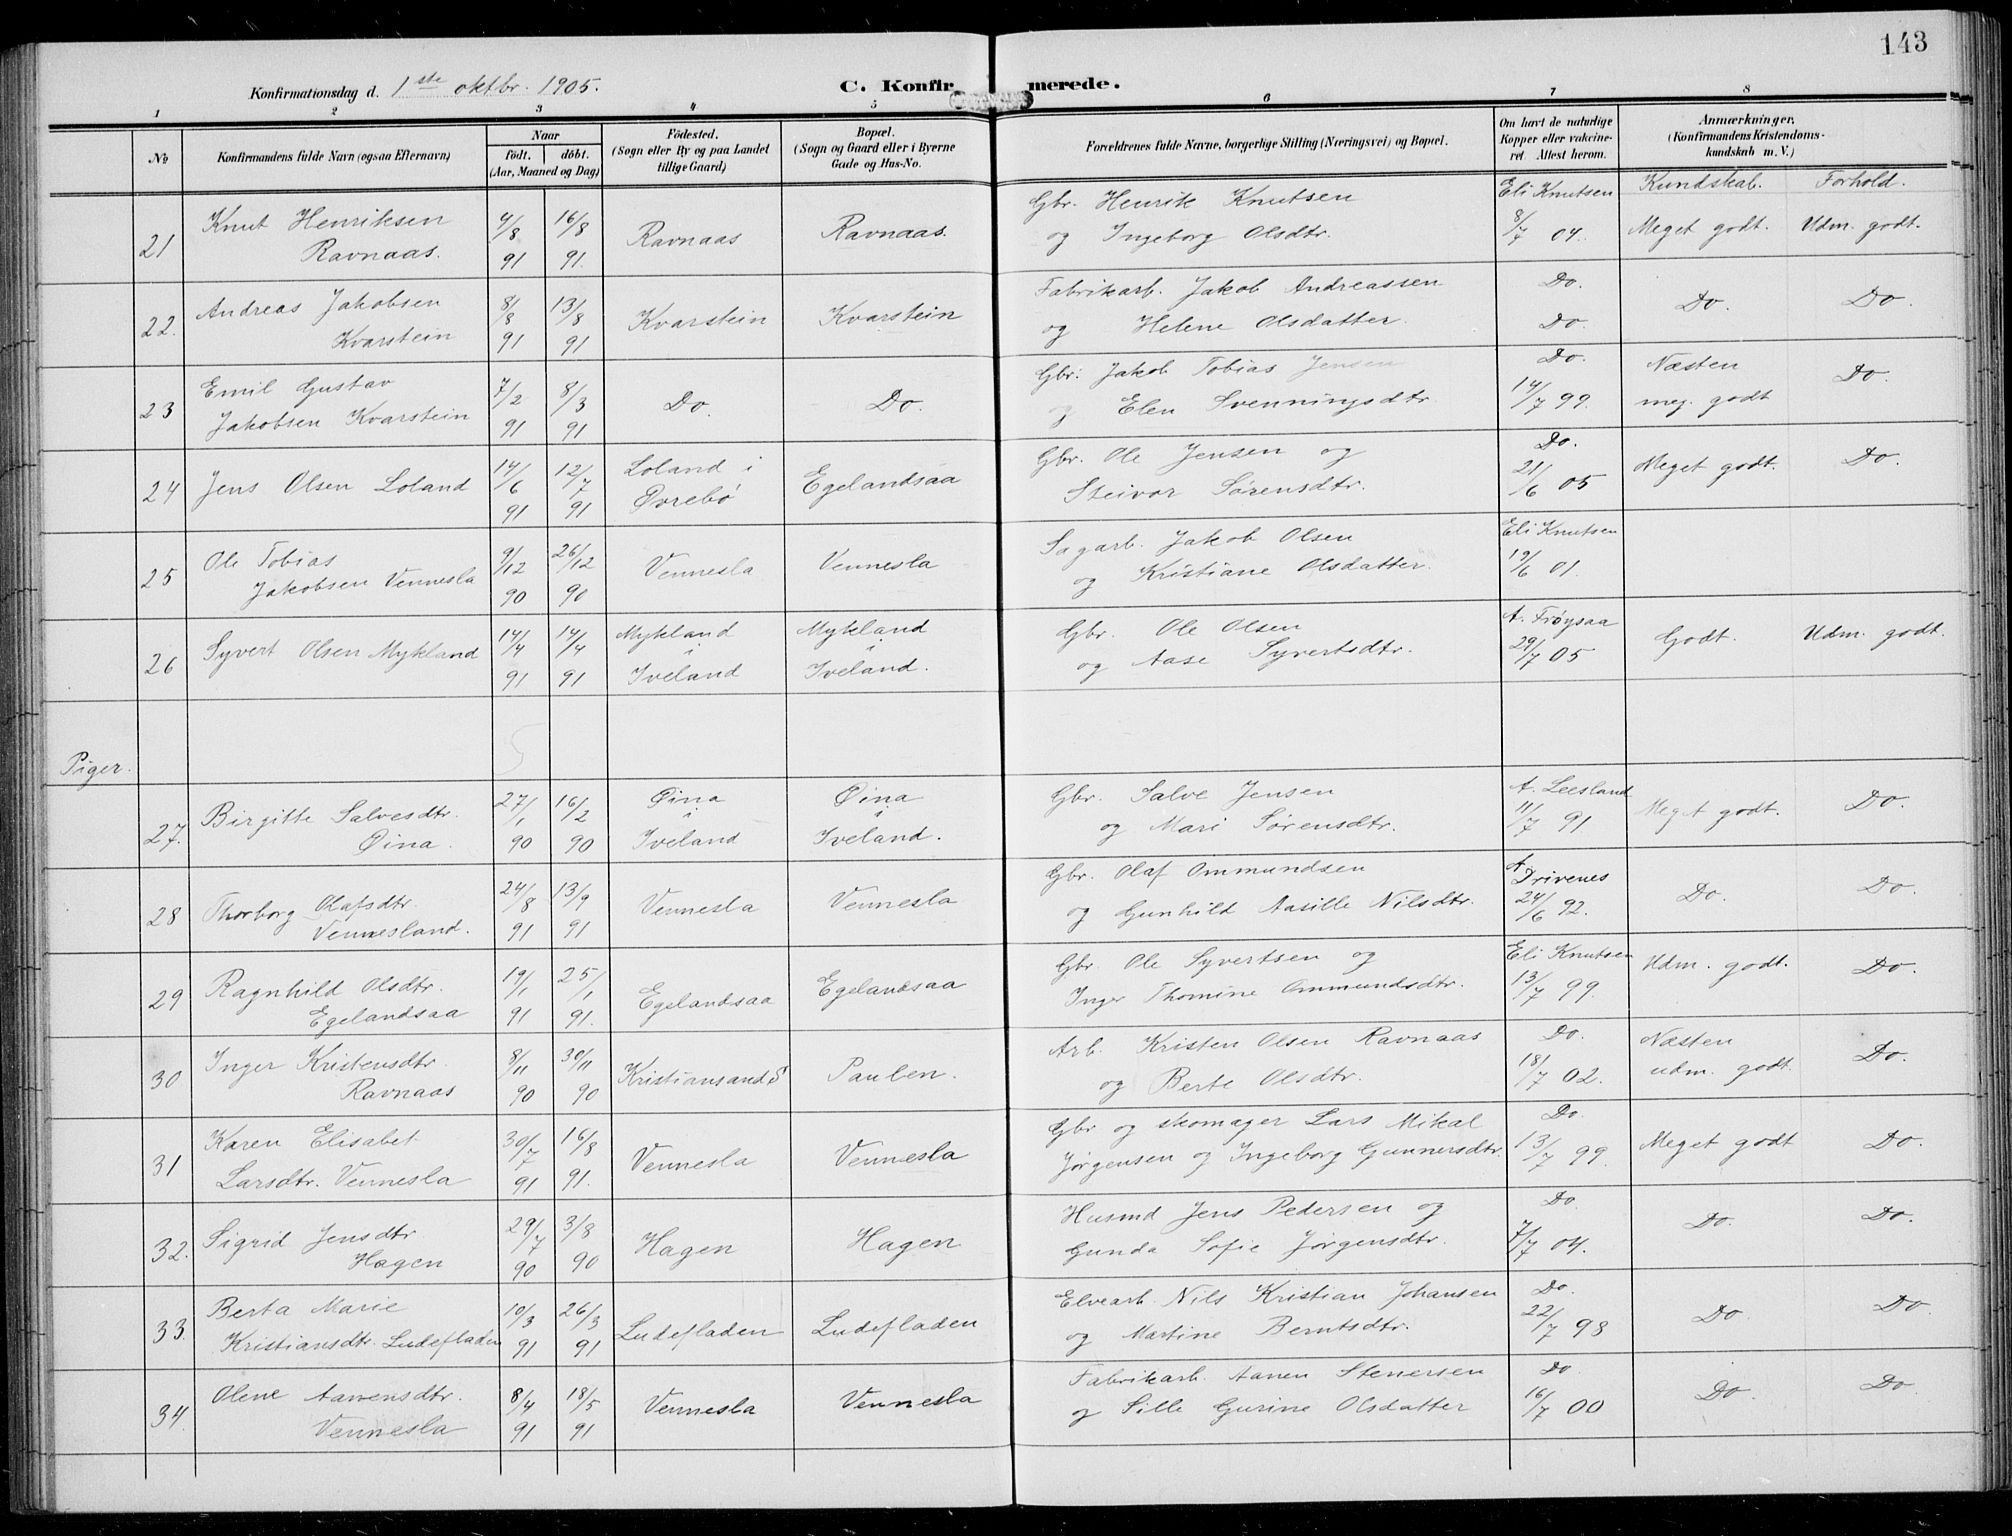 143
Konfirmationsdag d. 1ste oktbr. 1905.
C. Konfirmerede.
1 2 3 4 5 6 7 8
No
Konfirmandens fulde Navn (ogsaa Efternavn)
Naar
født. døbt.
(Aar, Maaned og Dag)
Fødested.
(Sogn eller By og paa Landet
tillige Gaard)
Bopæl.
(Sogn og Gaard eller i Byerne
Gade og Hus-No.
Forældrenes fulde Navne, borgerlige Stilling (Næringsvei) og Bopæl.
Om havt de naturlige
Kopper eller vakcine-
ret. Attest herom.
Anmærkninger.
(Konfirmandens Kristendoms-
kundskab m. V.)
Kundskab. Forhold.
21 Knut Henriksen
Ravnaas.
4/8 91 16/8 91.
Ravnaas Ravnaas.
Gbr. Henrik Knutsen
og Ingeborg Olsdtr.
Eli Knutsen
8/7 04.
Meget godt. Udm. godt.
22. Andreas Jakobsen
Kvarstein
8/8 91 13/8 91
Kvarstein Kvarstein
Fabrikarb. Jakob Andreassen
og Helene Olsdatter.
Do.
Do.
Do. Do.
23 Emil Gustav
Jakobsen Kvarstein
7/2 91 8/3 91
Do. Do.
Gbr. Jakob Tobias Jensen
og Elen Svenningsdtr
Do.
14/7 99.
Næsten
meg. godt
Do.
24 Jens Olsen Loland
14/6 91 12/7 91
Loland i
Øvrebø
Egelandsaa
Gbr. Ole Jensen og
Steivor Sørensdtr.
Do.
21/6 05
Meget godt. Do.
25 Ole Tobias
Jakobsen Vennesla
9/12 90 26/12 90
Vennesla Vennesla
Sagarb. Jakob Olsen
og Kristiane Olsdatter.
Eli Knutsen
19/6 01.
26 Syvert Olsen Mykland
14/4 91 14/4 91
Mykland
i
Iveland
Mykland
i
Iveland.
Gbr. Ole Olsen
og Aase Syvertsdtr.
A. Frøysaa
29/7 05
Godt. Udm. godt.
Piger.
27. Birgitte Salvesdtr.
Øina.
27/1 90 16/2 90
Øina
i
Iveland
Øina
i
Iveland.
Gbr. Salve Jensen
og Mari Sørensdtr.
A. Leesland
11/7 91
Meget godt. Do.
28 Thorborg Olafsdtr.
Vennesland.
24/8 91 13/9 91
Vennesla Vennesla
Gbr. Olaf Ommundsen
og Gunhild Aasille Nilsdtr.
A.
Drivenes
24/6 92.
Do. Do.
29 Ragnhild Olsdtr.
Egelandsaa
19/1 91 25/1 91.
Egelandsaa Egelandsaa
Gbr. Ole Syvertsen og
Inger Thomine Ommundsdtr.
Eli Knutsen
13/7 99.
Udm. godt. Do.
30 Inger Kristensdtr
Ravnaas
8/11 90 30/11 90
Kristiansand S Paulen.
Arb. Kristen Olsen Ravnaas
og Berte Olsdtr.
Do.
18/7 02.
Næsten
udm. godt.
Do.
31 Karen Elisabet
Larsdtr. Vennesla
30/7 91 16/8 91.
Vennesla Vennesla
Gbr og skomager Lars Mikal
Jørgensen og Ingeborg Gunnersdtr.
Do.
13/7 99.
Meget godt Do.
32. Sigrid Jensdtr
Hagen
29/7 90 3/8 90
Hagen Hagen
Husmd Jens Pedersen og
Gunda Sofie Jørgensdtr.
Do.
7/7 04.
Do. Do.
33. Berta Marie
Kristiansdtr. Ludefladen
10/3 91 26/3 91
Ludefladen Ludefladen
Elvearb. Nils Kristian Johansen
og Martine Berntsdtr.
Do.
22/7 98
Do Do.
34. Olene Aanensdtr.
Vennesla
8/4 91 18/5 91
Vennesla Vennesla
Fabrikarb. Aanen Stenersen
og Sille Gurine Olsdatter
Do
16/7 00
Do. Do